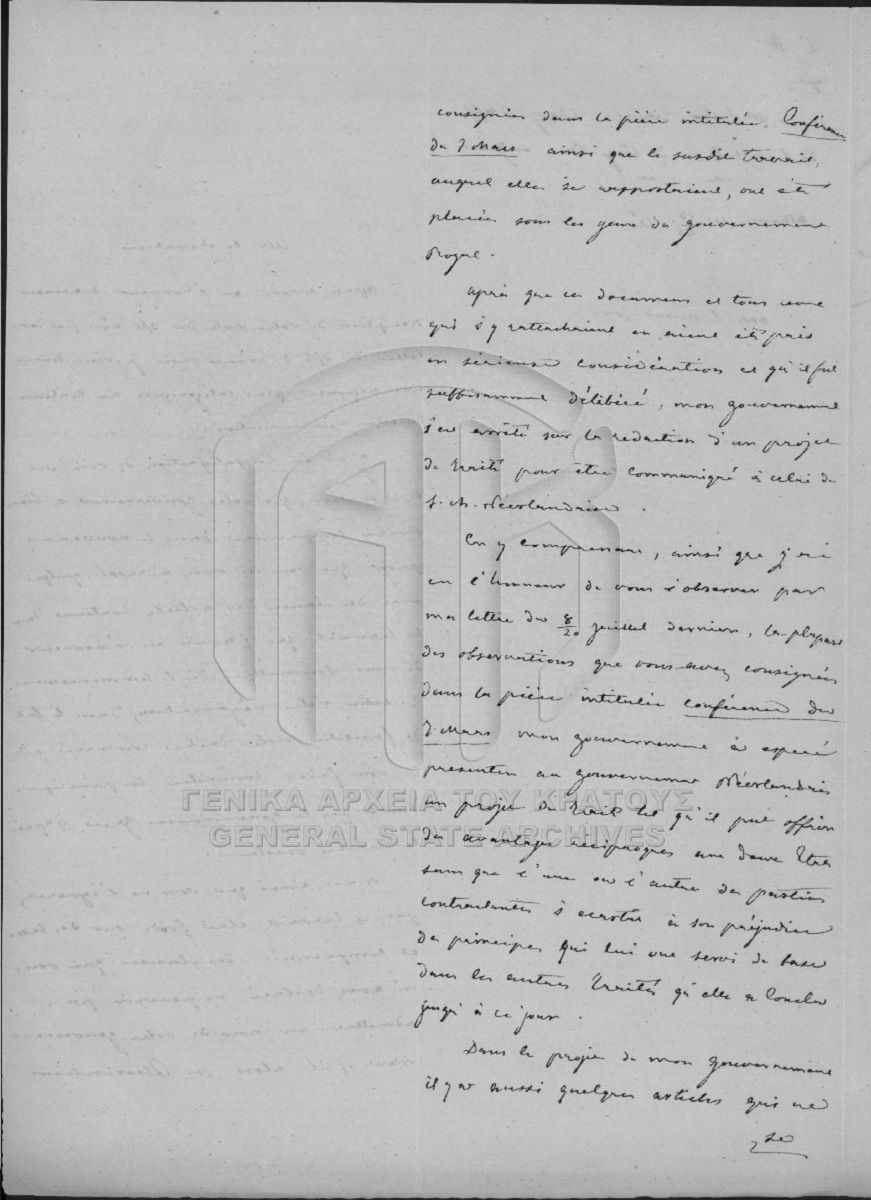 consignées dans la pièce intitulée Conférence
du 7 Mars ainsi que le susdit travail,
auquel elles se rapportaient, ont été
placées sous les yeux du gouvernement
Royal.
Après que ces documens et tous ceux
qui s'y rattachaient eurent été pris
en sérieuse considération et qu'il fut
suffisamment délibéré, mon gouvernement
s'est arrêté sur la rédaction d'un projet
de traité pour être communiqué à celui de
S. M. Néerlandaise.
En y comprenant, ainsi que j'ai
eu l'honneur de vous l'observer par
ma lettre du 8/20 juillet dernier, la plupart
des observations que vous avez consignées
dans la pièce intitulée conférence du
7 Mars mon gouvernement a espéré
présenter au gouvernement Néerlandais
un projet de traité tel qu'il put offrir
des avantages réciproques aux deux Etats
sans que l'une ou l'autre des parties
contractantes s'écartât à son préjudice
des principes qui lui ont servi de base
dans les autres traités qu'elle a conclu
jusqu'à ce jour.
Dans le projet de mon gouvernement
il y a aussi quelques articles qui ne
se
ΓΕΝΙΚΑ ΑΡΧΕΙΑ ΤΟΥ ΚΡΑΤΟΥΣ
GENERAL STATE ARCHIVES